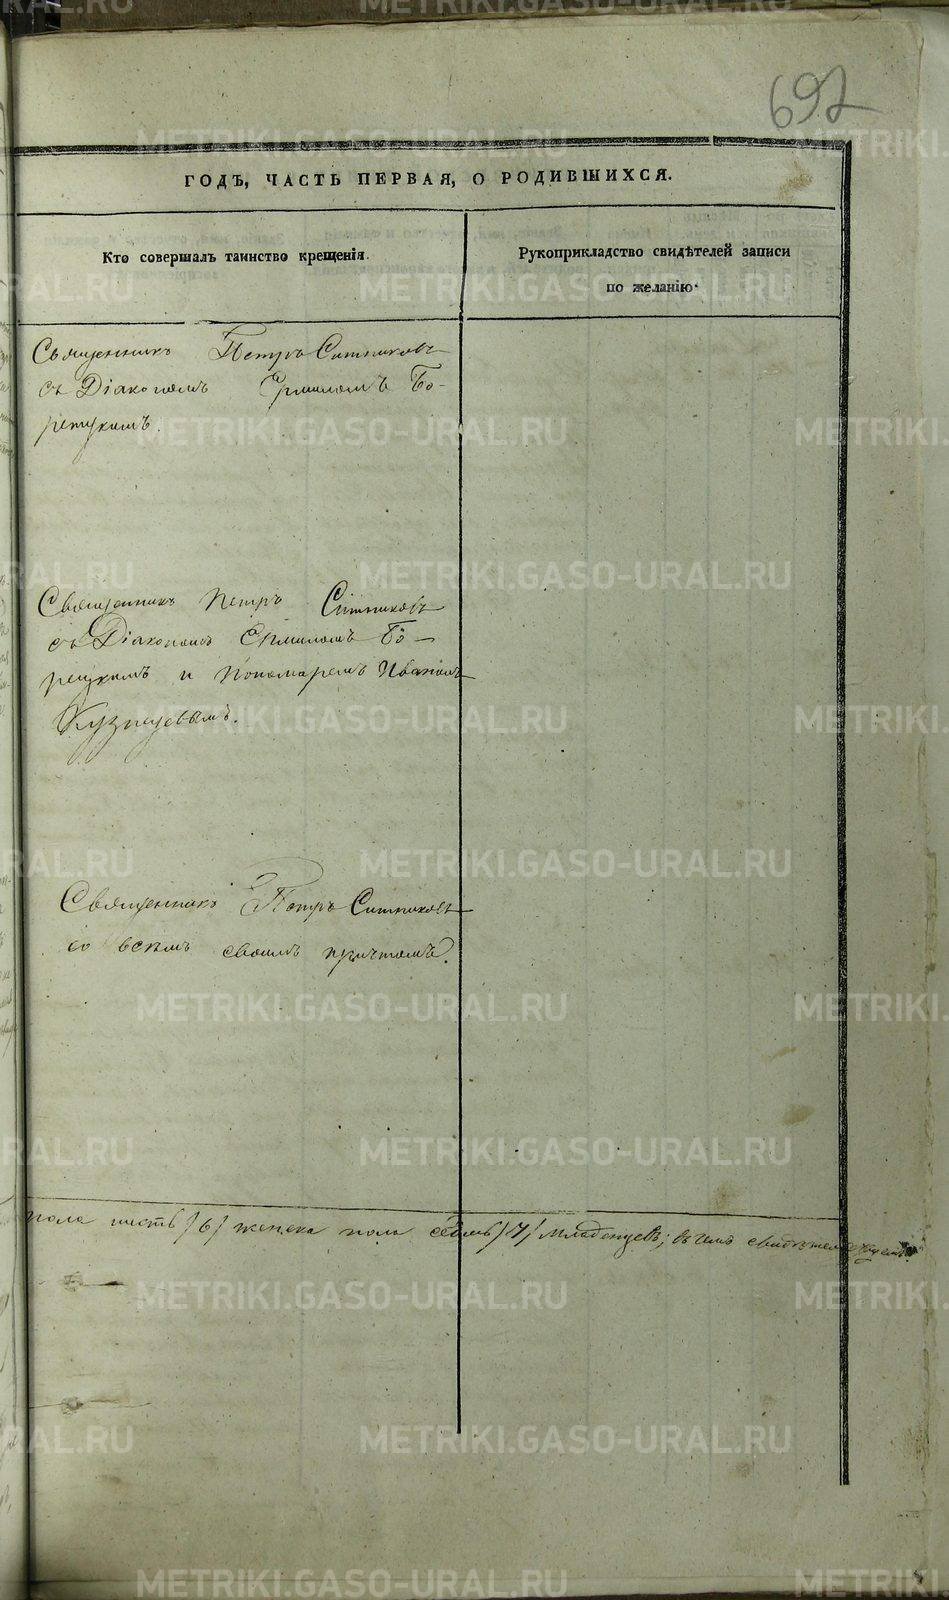 692
ГОДЪ, ЧАСТЬ ПЕРВАЯ, О РОДИВШИХСЯ.
Кто совершалъ таинство крещенія.
Рукоприкладство свидѣтелей записи
по желанію.
Священникъ Петръ Ситниковъ
съ Діакономъ Ермиломъ Бо-
рецкимъ.
Священникъ Петръ Ситниковъ
съ Діакономъ Ермиломъ Бо-
рецкимъ и Пономаремъ Иваномъ
Кузнецовымъ.
Священникъ Петръ Ситниковъ
со всѣмъ своимъ причтомъ.
пола шесть /6/ женска пола семь /7/ младенцевъ; въ чемъ
METRIKI.GASO-URAL.RU